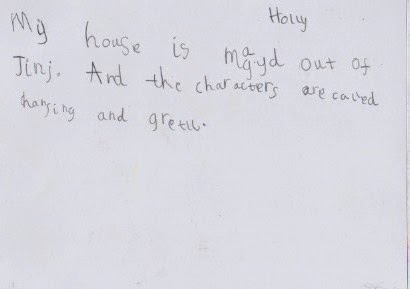 Holly
My house is magyd out of
Jinj. And the characters are caled
hansing and gretil.